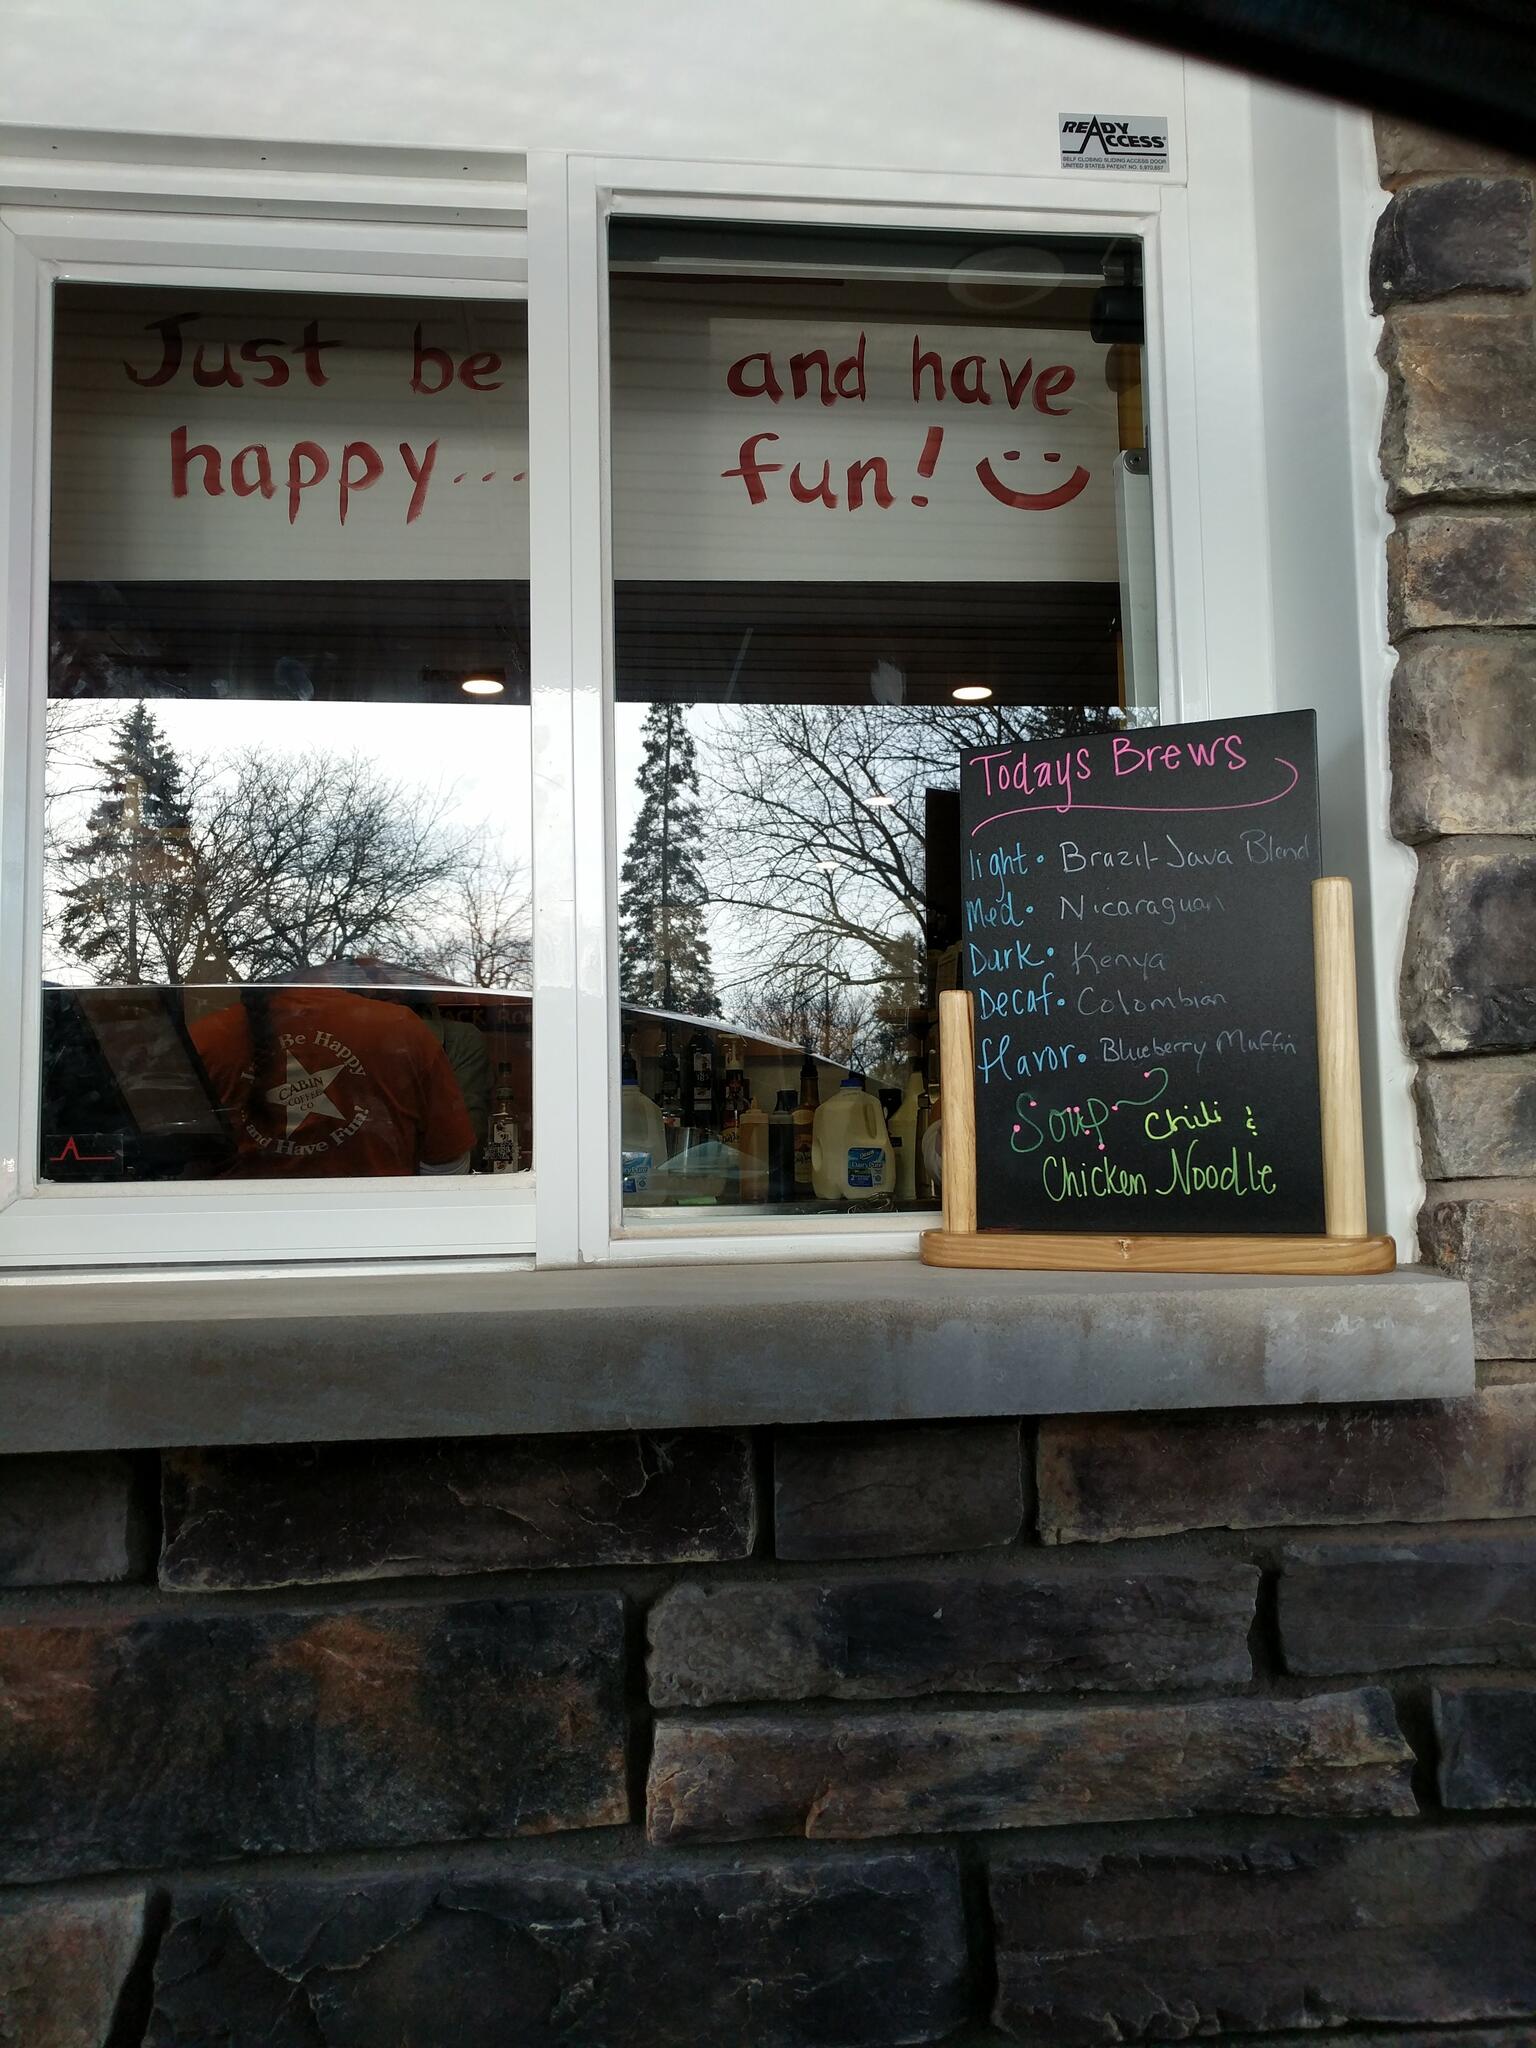 READY ACCESS
SELF CLOSING SLIDING ACCESS DOOR
UNITED STATES PATENT NO. 5,970,657
Just be
happy...
and have
fun!
Todays Brews
light • Brazil-Java Blend
Med • Nicaraguan
Dark • Kenya
Decaf • Colombian
flavor • Blueberry Muffin
Soup~ Chili &
Chicken Noodle
Be Happy
CABIN
COFFEE
CO
...and Have Fun!